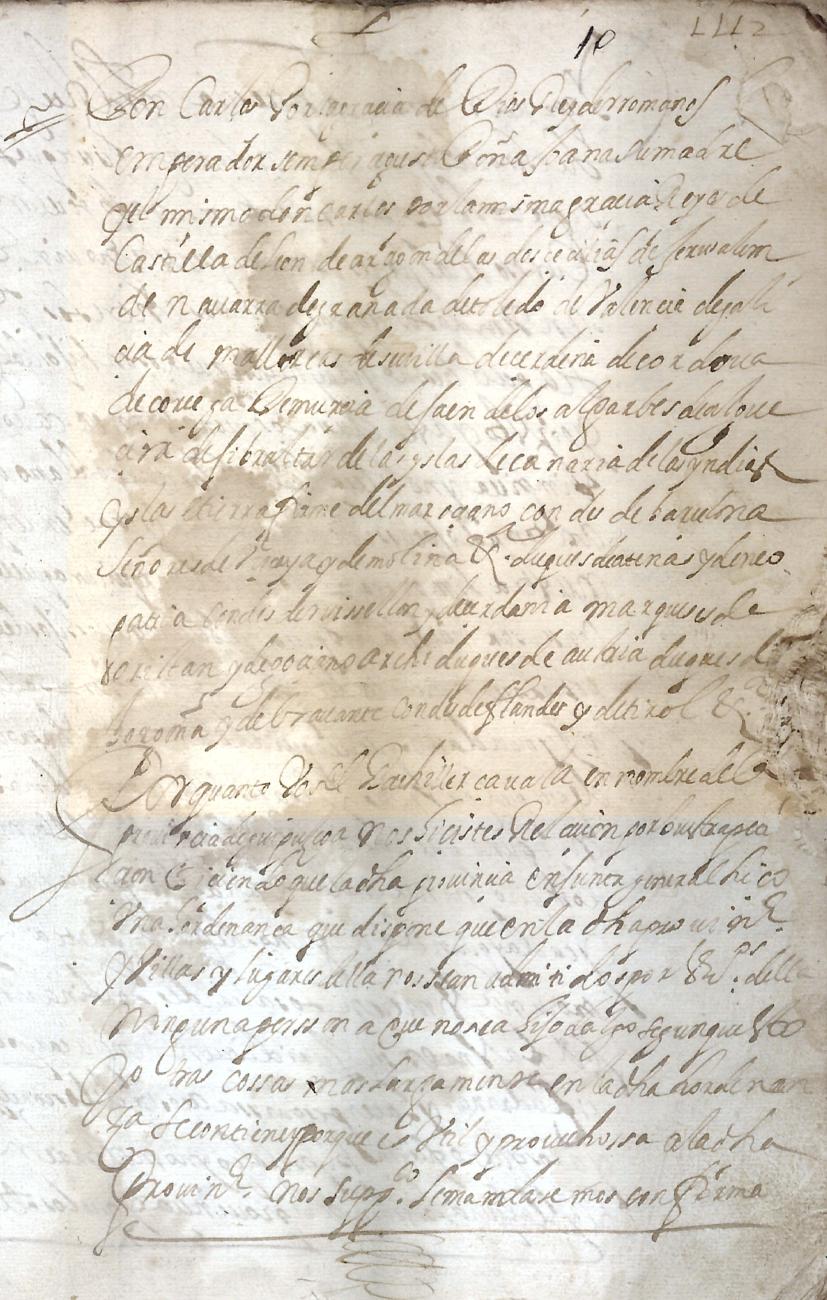 10
Don Carlos Por la gracia de Dios Rey de rromanos
emperador semper agusto Doña Joana su madre
y el mismo don carlos por la misma gracia Reyes de
Castilla de leon de aragon de las dos secilias de Jerusalem
de navarra de granada de toledo de Valencia de gali
cia de mallorcas de sevilla de cerdenia de cordova
de corcega de murcia de Jaen de los algarbes de algue
cira de gibraltar de las yslas de canaria de las yndias
yslas e tierra firme del mar oceano condes de barcelona
señores de vizcaya y de molina &. duques de atenas y de neo
patria condes de ruissellon y de cerdania marqueses de
oristan y de gociano archiduques de austria duques de
borgoña y de bravante condes de flandes y de tirol &ca
Por quanto Vos el Bachiller cavala en nombre de la
provincia de guipuzcoa nos hicistes Relacion por vuestra peti
cion diciendo que la dha provincia en junta general hico
Una hordenança que dispone que en la dha provinª.
y Villas y lugares della no sean admitidos por vºs. della
Ninguna persona que no sea hijodalgo segun que esto
y otras cossas mas largamente en la dha hordenan
ça se contiene y porque es Util y provechossa a la dha
Provinª. nos suppco. la mandasemos confirma